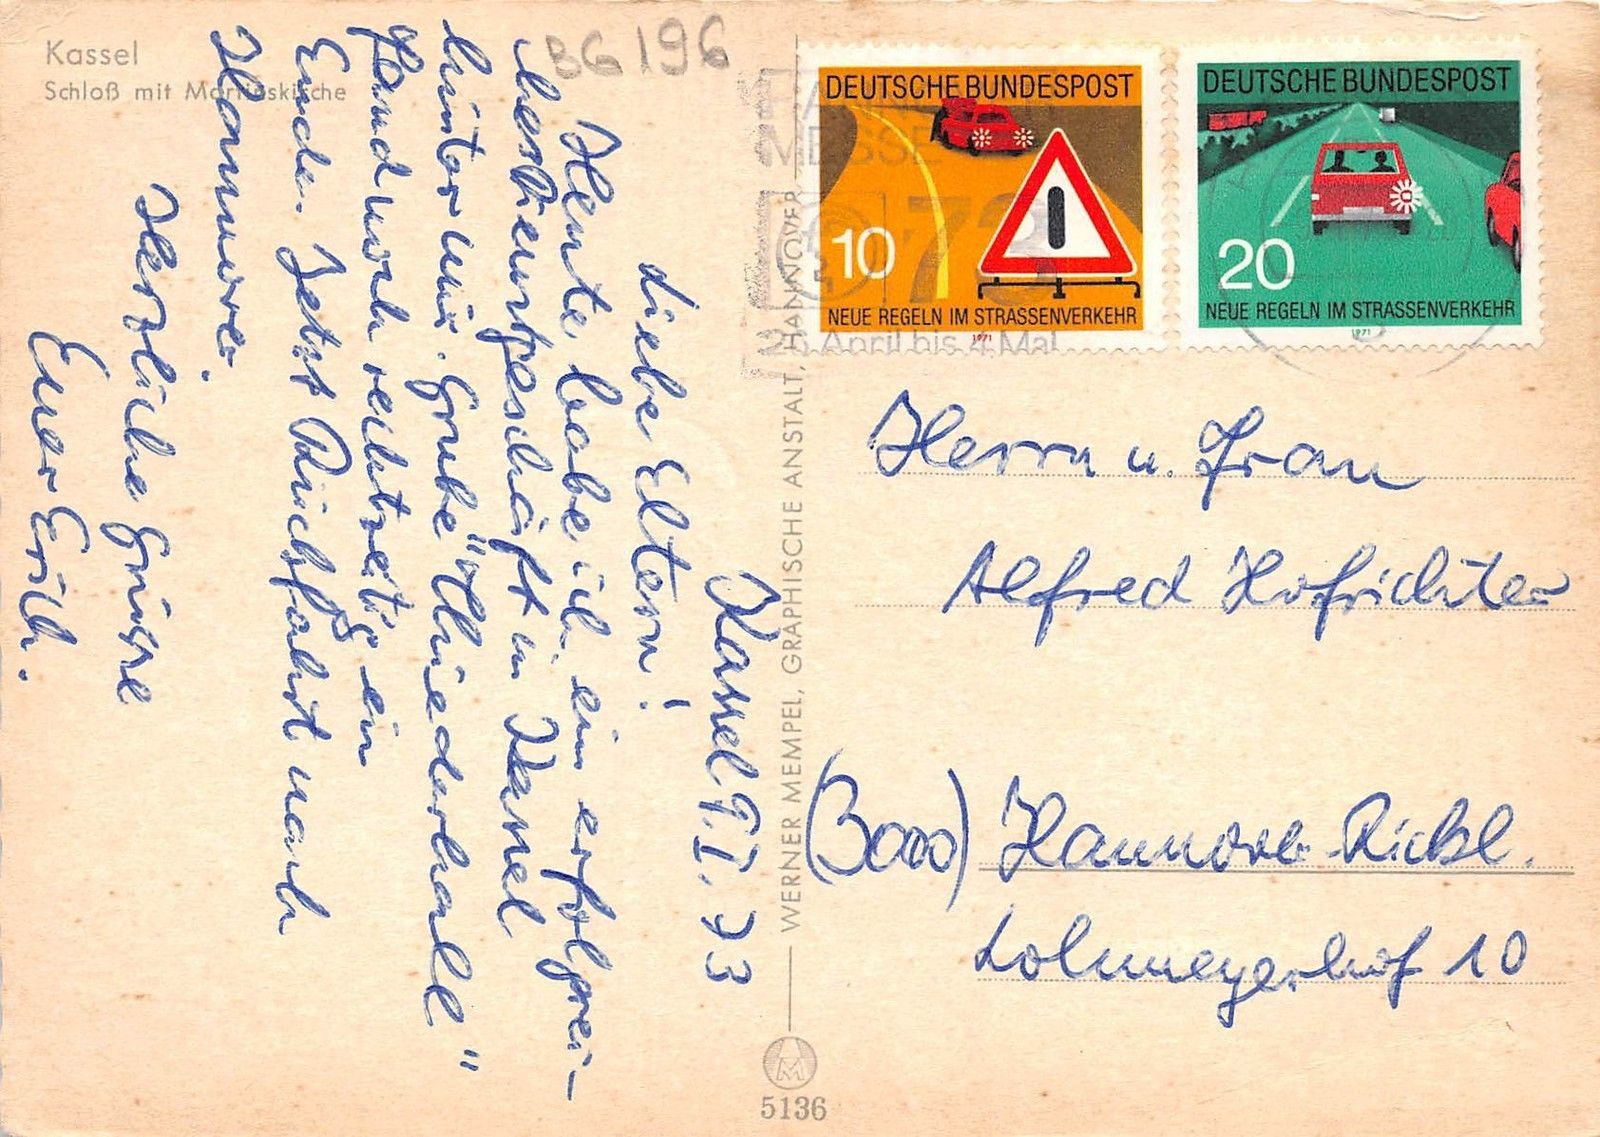 Kassel
Schloß mit Martinskirche
BG 196
Kassel 9.I.73
Liebe Eltern!
Heute habe ich ein erfolgrei-
ches
in Kassel
hinter mir. Grube "Thiederhall"
fand wohl rechtzeitig ein
Ende. Jetzt Rückfahrt nach
Hannover.
Herzliche Grüsse
Euer Erich.
WERNER MEMPEL, GRAPHISCHE ANSTALT, HANNOVER
5136
DEUTSCHE BUNDESPOST
10
NEUE REGELN IM STRASSENVERKEHR
1971
DEUTSCHE BUNDESPOST
20
NEUE REGELN IM STRASSENVERKEHR
1971
MESSE
73
April bis 4. Mai
Herrn u. Frau
Alfred Hofrichter
(3000) Hannover-Rickl.
Lohmeyerhof 10